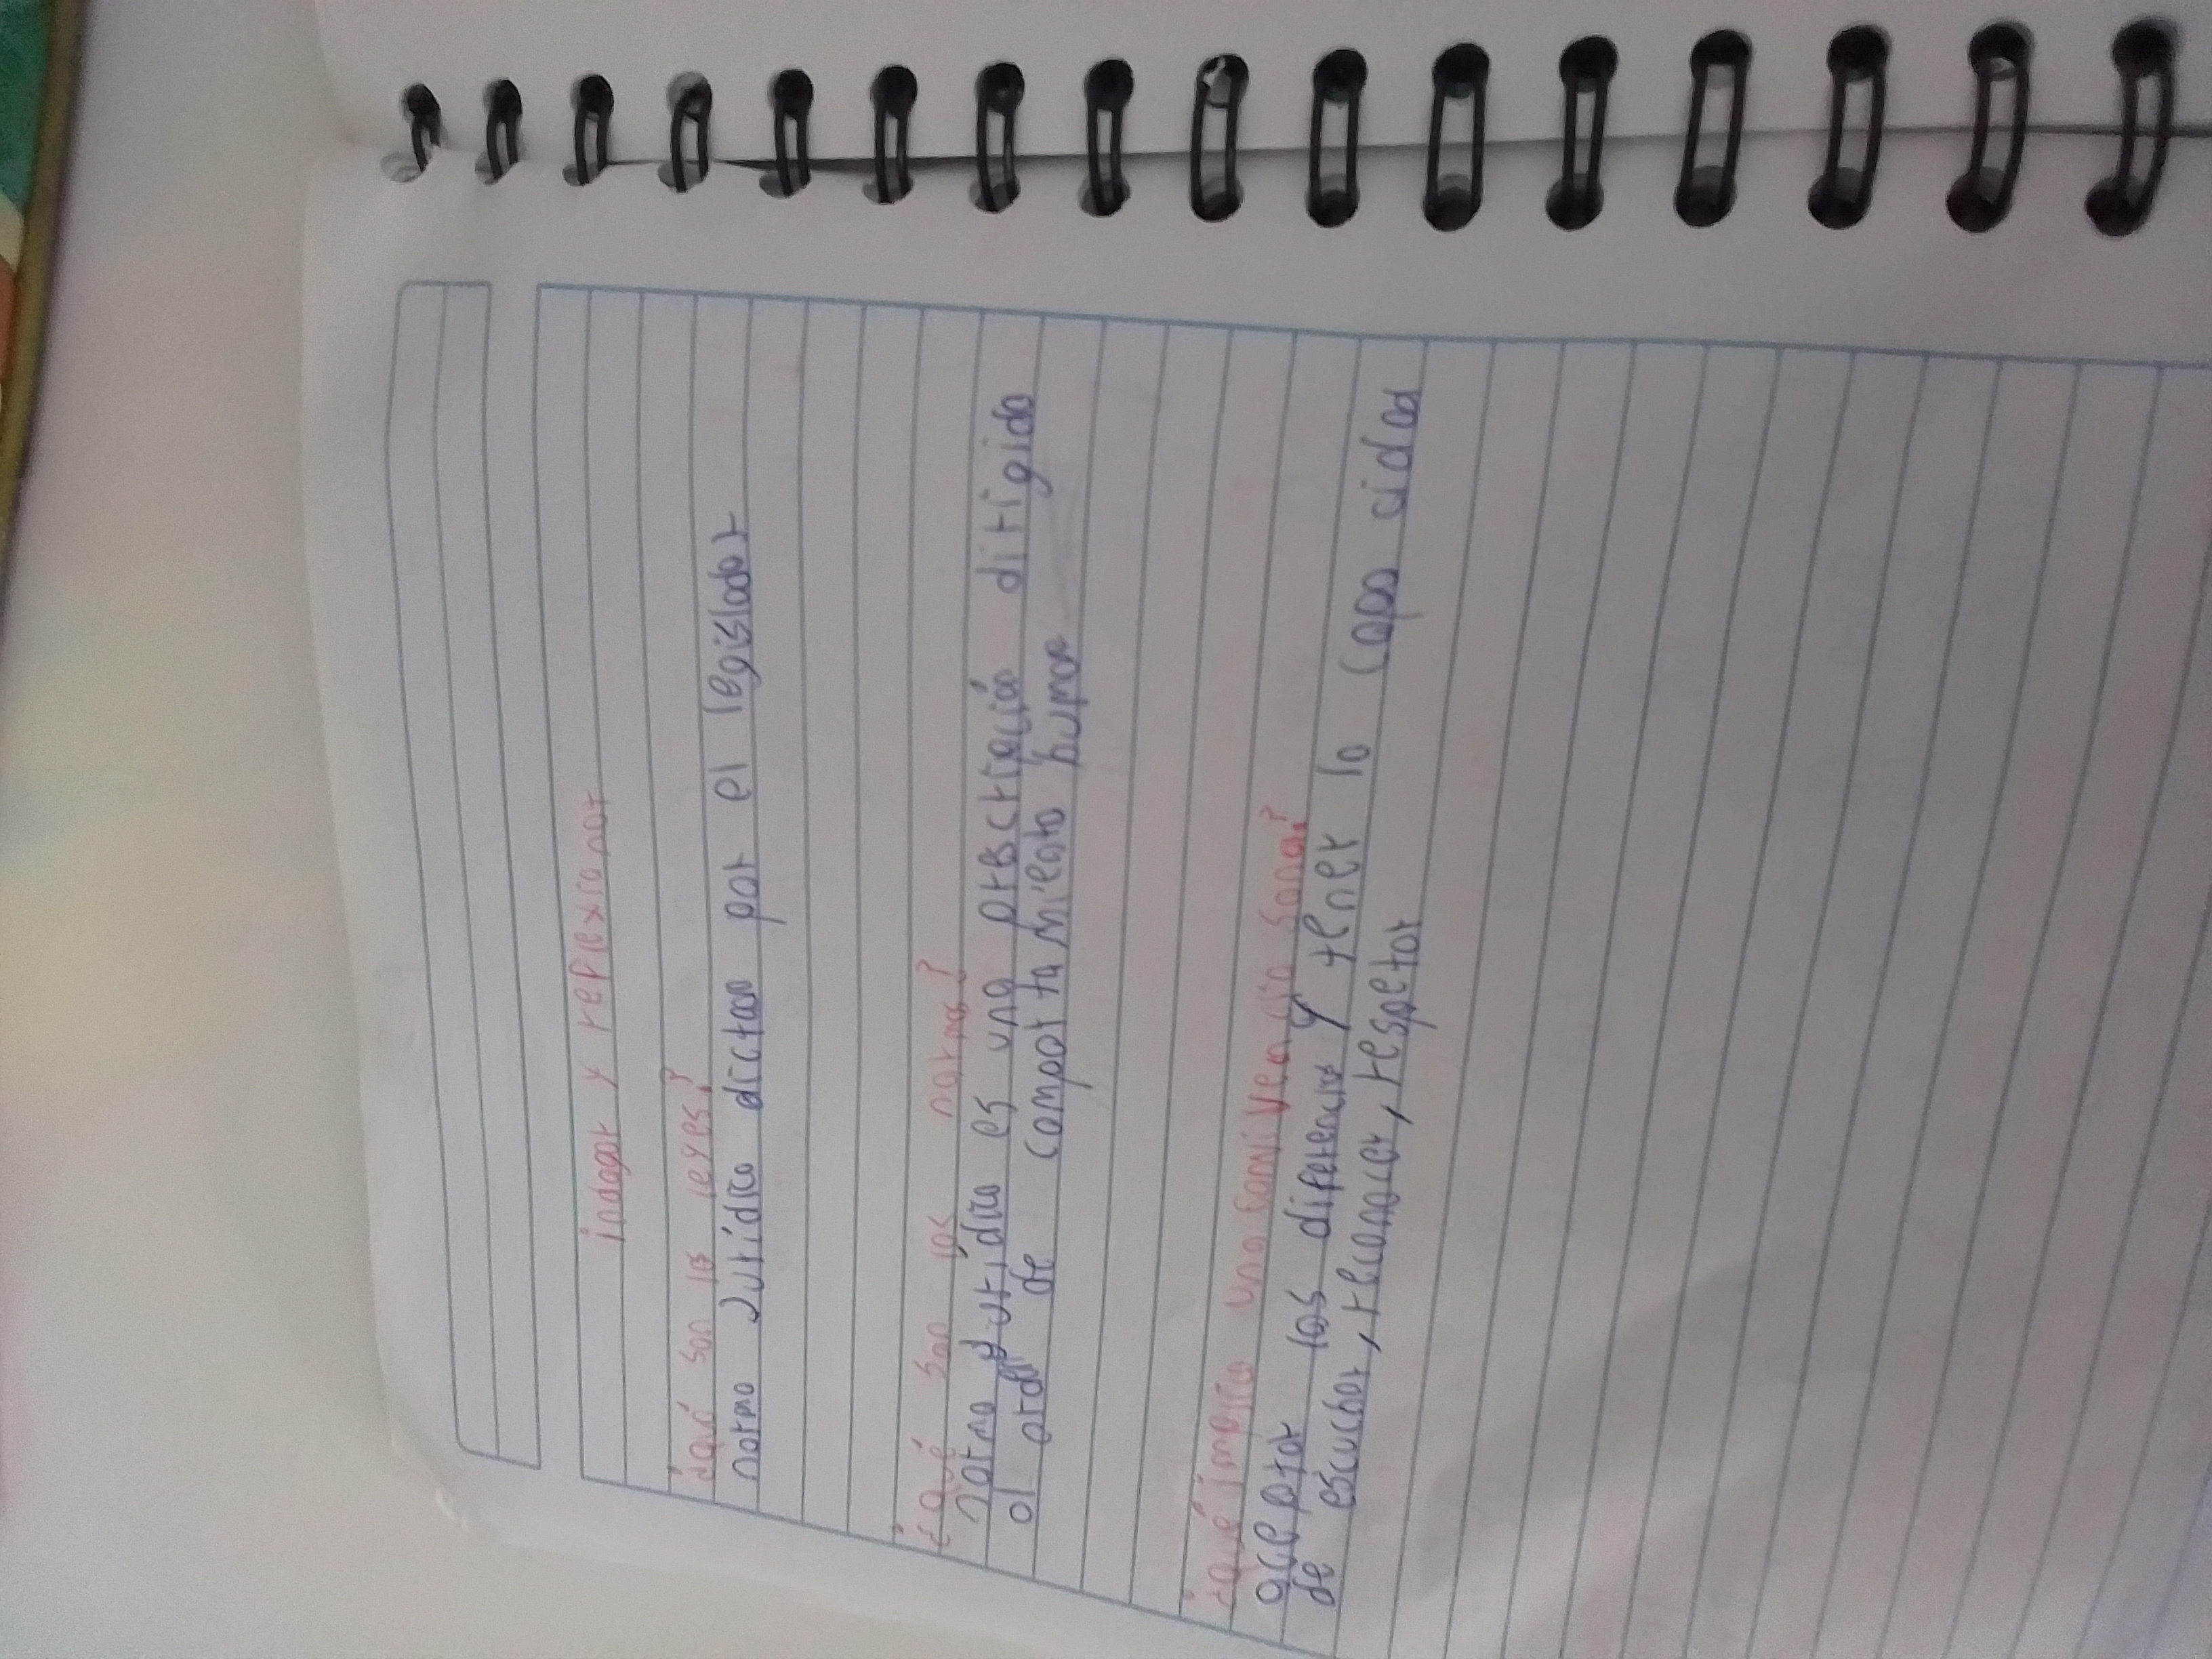 indagar y reflexionar
¿qué son las leyes?
norma Jurídica dictada por el legislador
¿Qué son las normas?
norma jurídica es una prescripción dirigida
al orden de comportamiento humano
¿qué implica una convivencia sana?
aceptar las diferencias y tener la capacidad
de escuchar, reconocer, respetar